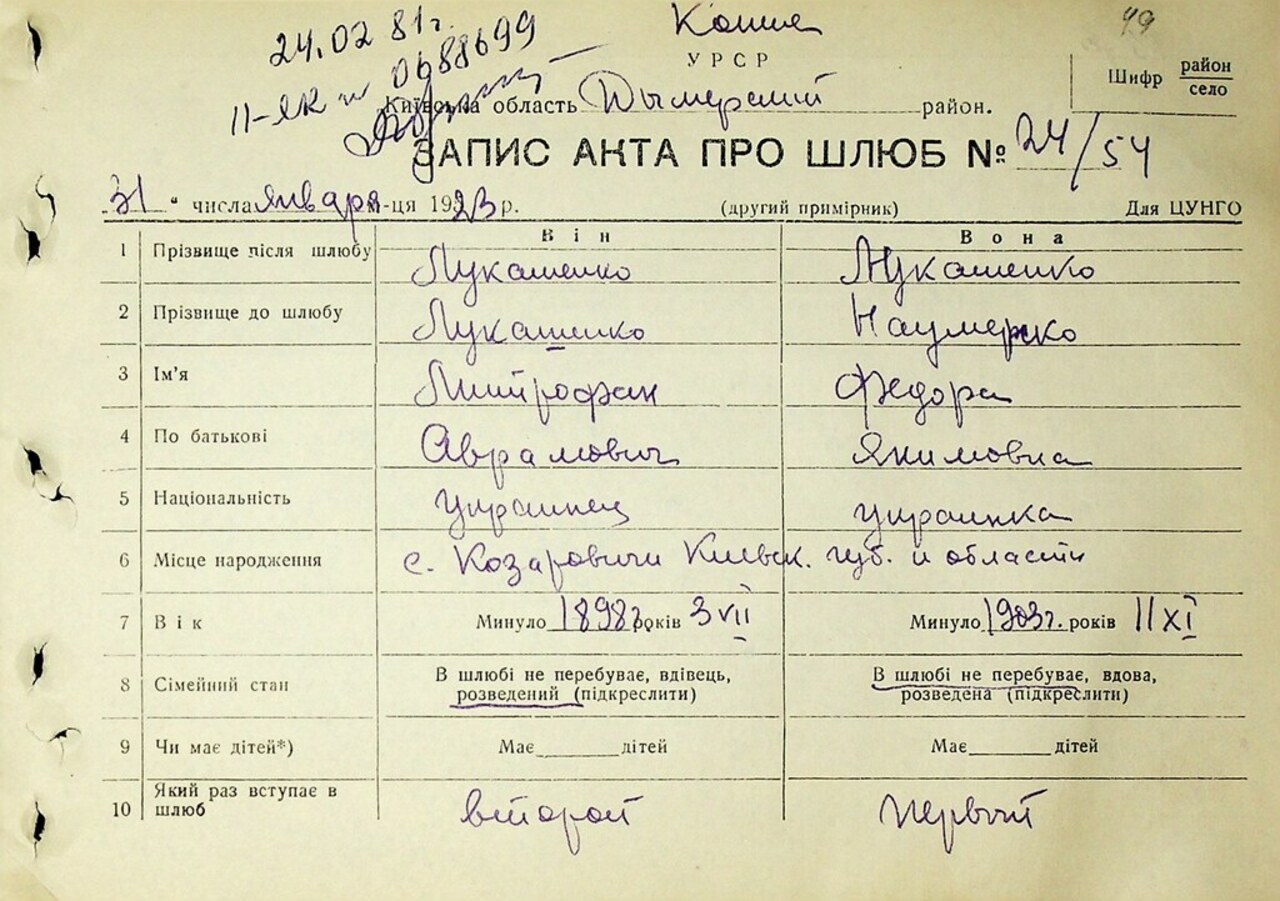 24.02 81 г.
II-ЯК № 0688699
Копия
49
УРСР
Київська область Дымерский район.
Шифр район
село
ЗАПИС АКТА ПРО ШЛЮБ № 24/54
"31" числа января м-ця 1923 р. (другий примірник) Для ЦУНГО
Він Вона
1 Прізвище після шлюбу Лукашенко Лукашенко
2 Прізвище до шлюбу Лукашенко
3 Ім'я Митрофан Федора
4 По батькові Аврамович Якимовна
5 Національність украинец украинка
6 Місце народження с. Козаровичи Киевск. губ. и области
7 Вік Минуло 1898 г. років 3 VII Минуло 1903 г. років 11 XI
8 Сімейний стан В шлюбі не перебуває, вдівець, В шлюбі не перебуває, вдова,
розведений (підкреслити) розведена (підкреслити)
9 Чи має дітей*) Має дітей Має дітей
10 Який раз вступає в
шлюб второй первый